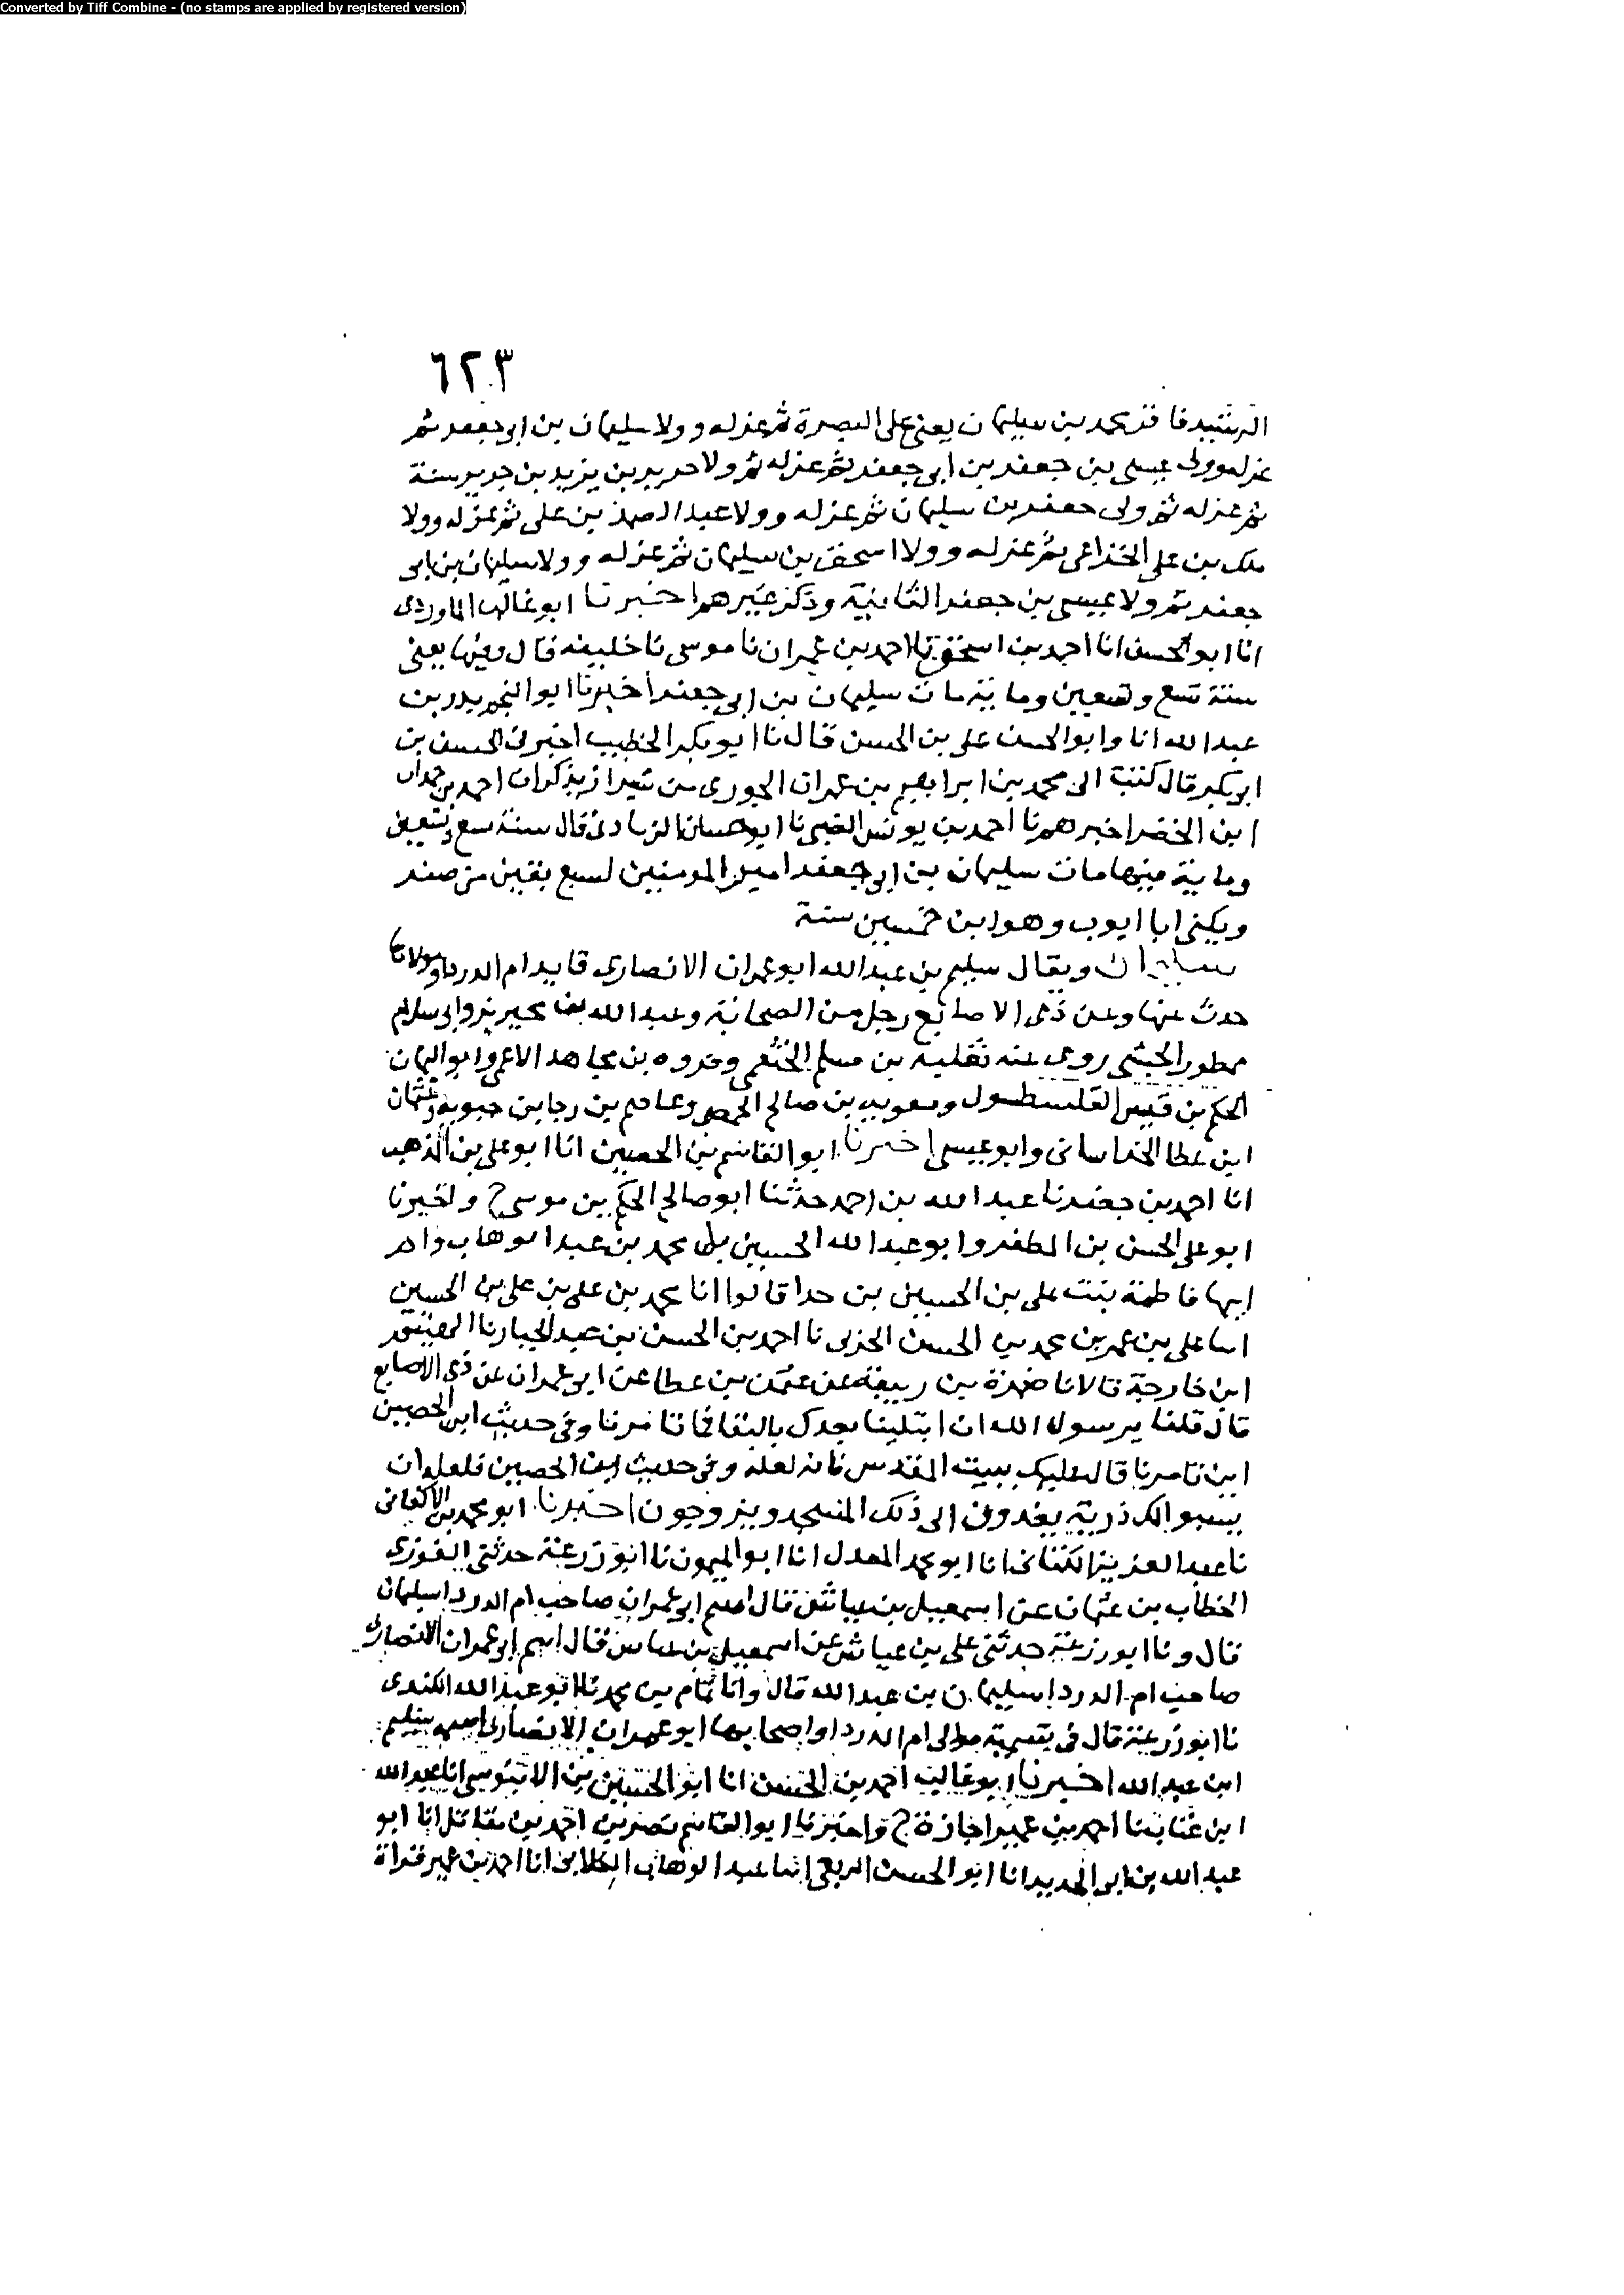 Converted by Tiff Combine - (no stamps are applied by registered version)
٦٢٣
الرشيد فاقر محمد بن سليمان يعني على البصرة ثم عزله وولا سليمان بن ابي جعفر ثم
عزله وولى عيسى بن جعفر بن ابي جعفر ثم عزله ثم ولا جرير بن يزيد بن جرير سنة
ثم عزله ثم ولى جعفر بن سليمان ثم عزله وولا عبد الصمد بن علي ثم عزله وولا
ملك بن علي الخزاعي ثم عزله وولا اسحق بن سليمان ثم عزله وولا سليمان بن ابي
جعفر ثم ولا عيسى بن جعفر الثانية وذكر غيرهم اخبرنا ابو غالب الماوردي
انا ابو الحسن انا احمد بن اسحق نا احمد بن عمران نا موسى نا خليفه قال وفيها يعني
سنة تسع وتسعين وماية مات سليمان بن ابي جعفر اخبرنا ابو النجم بدر بن
عبد الله انا وابو الحسن علي بن الحسن قال نا ابو بكر الخطيب اخبرني الحسن بن
ابي بكر قال كتب الى محمد بن ابراهيم بن عمران الجوري من شيراز يذكران احمد بن حمدان
ابن الخضر اخبرهم نا احمد بن يونس الضبي نا ابو حسان الزيادي قال سنة تسع وتسعين
وماية فيها مات سليمان بن ابي جعفر امير المومنين لسبع بقين من صفر
ويكنى ابا ايوب وهو ابن خمسين سنة
سليمان ويقال سليم بن عبد الله ابو عمران الانصاري قايد ام الدردا ومولاتها
حدث عنها وعن ذي الاصابع رجل من الصحابة وعبد الله بن محيريز وابي سلام
ممطور الحبشي روى عنه ثعلبه بن مسلم الخثعمي وفروه بن مجاهد الاعمى وابو اليمان
الحكم بن قيس ومعويه بن صالح الحمصي وعاصم بن رجا بن حيوية وعثمان
ابن عطا الخراساني وابو عيسى اخبرنا ابو القاسم بن الحصين انا ابو علي بن المذهب
انا احمد بن جعفر نا عبد الله بن احمد حدثنا ابو صالح الحكم بن موسى ح واخبرنا
ابو علي الحسن بن المظفر وابو عبد الله الحسين بن محمد بن عبد الوهاب وام
ابيها فاطمة بنت علي بن الحسين بن جدا قالوا انا محمد بن علي بن علي بن الحسين
انبا علي بن عمر بن محمد بن الحسن الحربي نا احمد بن الحسن بن عبد الجبار نا الهيثم
ابن خارجة قالا نا ضمرة بن ربيعة عن عثمن بن عطا عن ابي عمران عن ذي الاصابع
قال قلنا يرسول الله ان ابتلينا بعدك بالبقا فما تامرنا وفي حديث ابن الحصين
اين تامرنا قال عليك ببيت المقدس فانه لعله وفي حديث ابن الحصين فلعله ان
ينسبوا لك ذرية يغدون الى ذلك المسجد ويروحون اخبرنا ابو محمد بن الاكفاني
نا عبد العزيز الكتاني انا ابو محمد المعدل انا ابو الميمون نا ابو زرعة حدثني الفوزي
الخطاب بن عثمان عن اسمعيل بن عياش قال اسم ابي عمران صاحب ام الدردا سليمان
قال ونا ابو زرعة حدثني علي بن عياش عن اسمعيل بن عياش قال اسم ابي عمران الانصاري
صاحب ام الدردا سليمان بن عبد الله قال وانا تمام بن محمد نا ابو عبد الله الكندي
نا ابو زرعة قال في تسمية موالي ام الدردا واصحابها ابو عمران الانصاري اسمه سليم
ابن عبد الله اخبرنا ابو غالب احمد بن الحسن انا ابو الحسين بن الابنوسي انا عبد الله
ابن عتاب انا احمد بن عمير اجازة ح واخبرنا ابو القاسم نصر بن احمد بن مقاتل انا ابو
عبد الله بن ابي الحديد انا ابو الحسن الربعي انبا عبد الوهاب الكلابي انا احمد بن عمير قراة